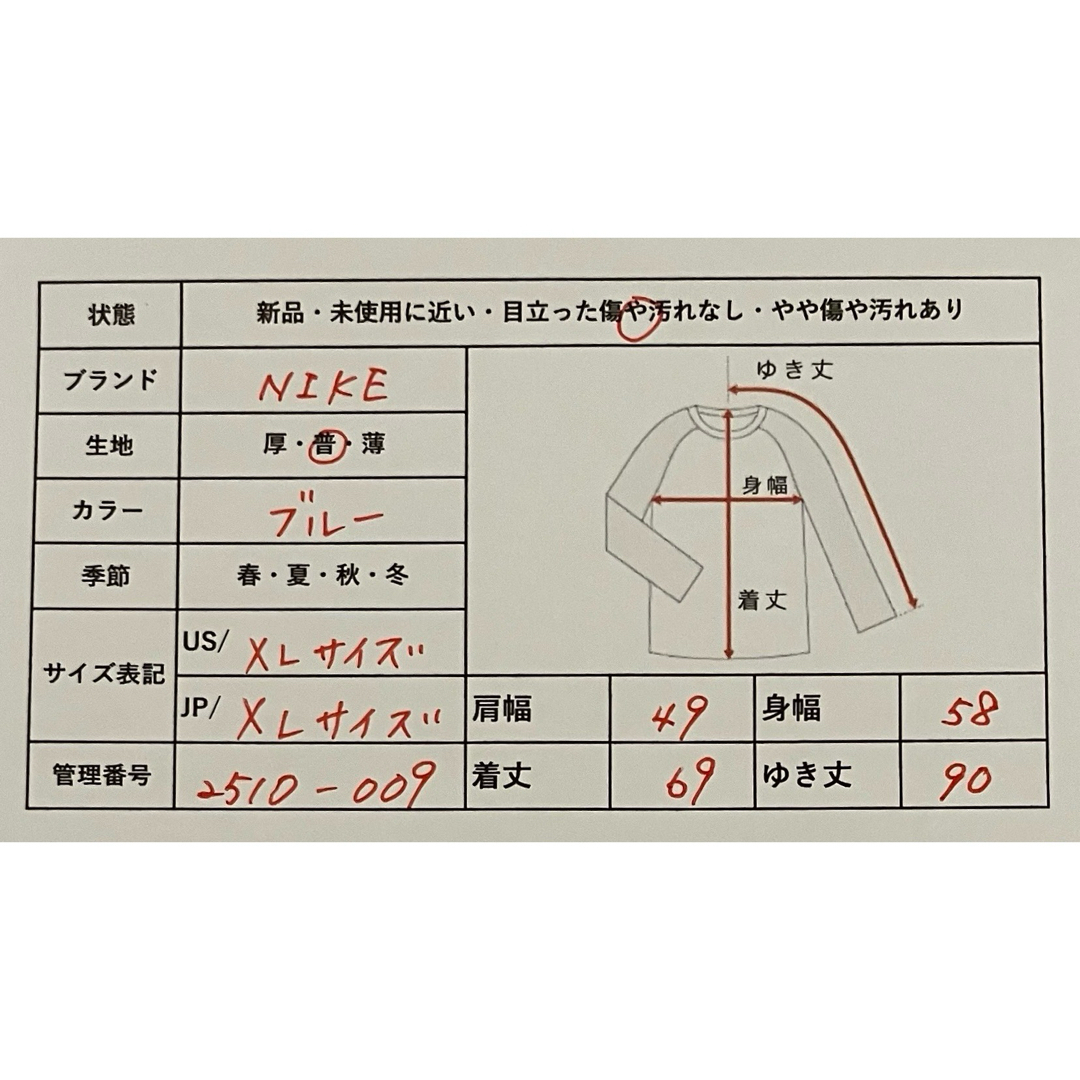 状態 新品・未使用に近い・目立った傷や汚れなし・やや傷や汚れあり
ブランド NIKE
生地 厚・普・薄
カラー ブルー
季節 春・夏・秋・冬
サイズ表記 US/ XLサイズ
JP/ XLサイズ
管理番号 2510-009
ゆき丈
身幅
着丈
肩幅 49 身幅 58
着丈 69 ゆき丈 90